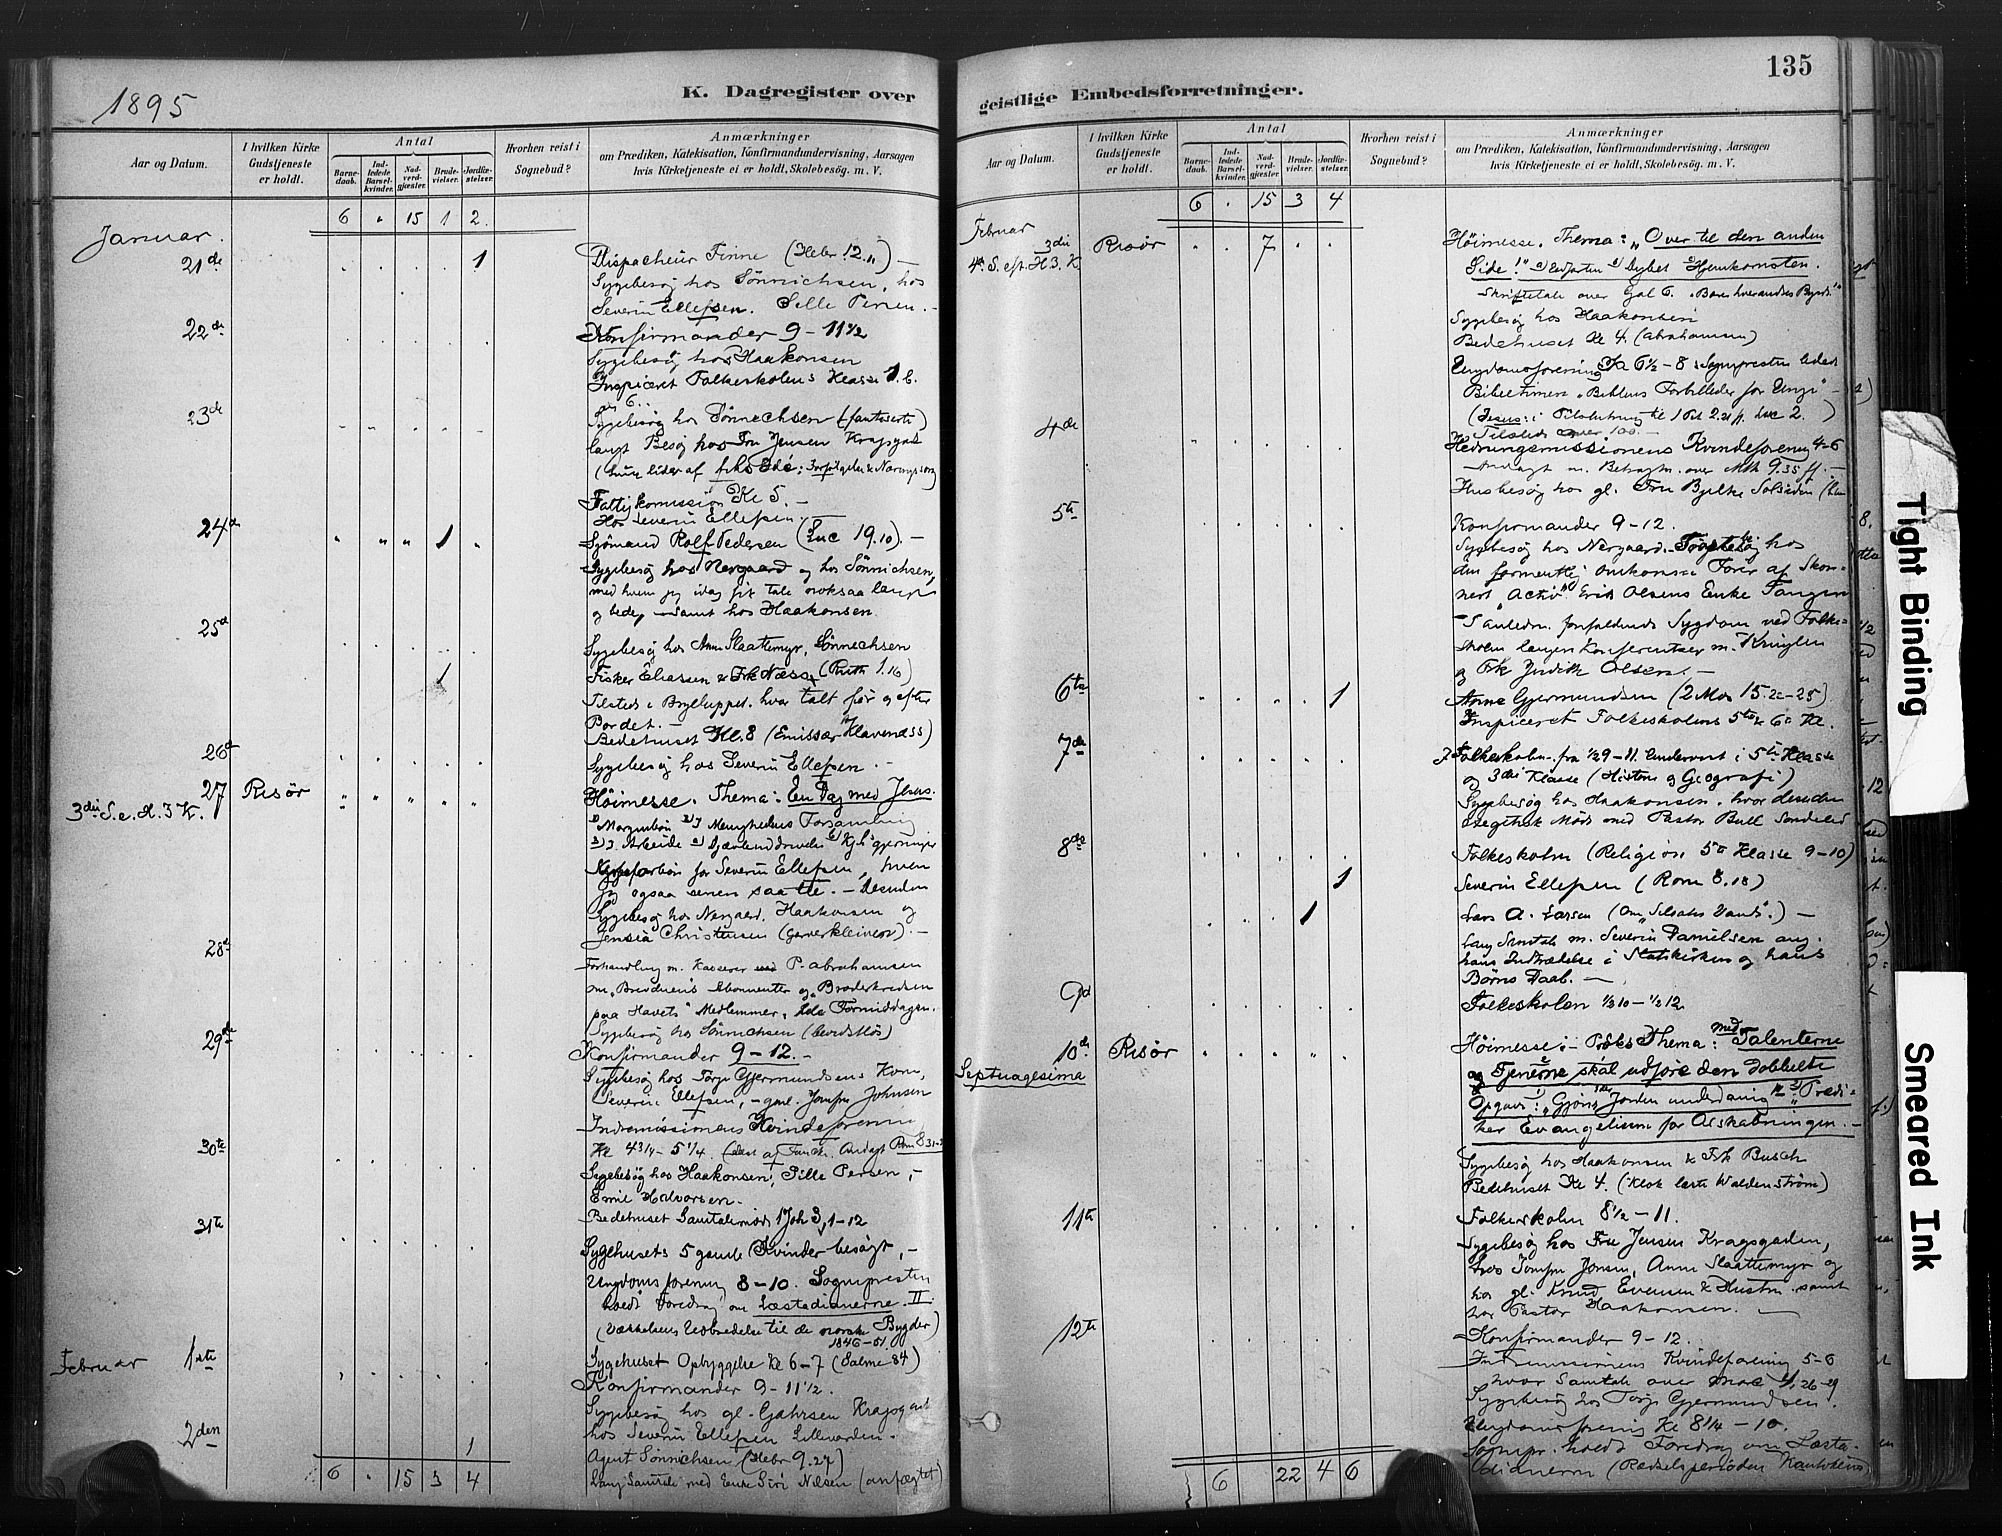 1895
K. Dagregister over
Aar og Datum.
I hvilken Kirke
Gudstjeneste
er holdt.
Antal
Barne-
daab.
Ind-
ledede
Barsel-
kvinder.
Nad-
verd-
gjæster.
Brude-
vielser.
Jordfæ-
stelser.
Hvorhen reist i
Sognebud?
Anmærkninger
om Prædiken, Katekisation, Konfirmandundervisning, Aarsagen
hvis Kirketjeneste ei er holdt, Skolebesøg. m. V.
6 " 15 1 2
Januar.
21de 1 Dispacheur Finne (Hebr 12.11) –
Sygebesøg hos Sønnichsen, hos
Severin Ellefsen. Sille Persen. –
22de Konfirmander 9 – 11 1/2
Sygebesøg hos Haakonsen
Inspiceret Folkeskolens Klasse 1. b.
23de Sygebesøg hos Sønnechsen (fantiserte)
langt Besøg hos Fru Jensen Kragsgade
Fattigkomission Kl 5. –
Hos Severin Ellefsen
24d 1 Sjömand Rolf Pedersen (Luc 19.10). –
Sygebesøg hos Nergaard og hos Sönnichsen,
med hvem jeg idag fik tale noksaa længe
og bede, samt hos Haakonsen.
25d Sygebesøg hos Anne Slaattemyr, Sönnechsen
1 Fisker Eliassen & Frk Næss (Ruth 1.16)
Tilsted i Brylluppet. hvor talt før og efter
Bordet. –
Bedehuset Kl. 8 (Emissær Havenæss)
26d Sygebesøg hos Severin Ellefsen. –
27 Risör Höimesse. Thema: En Dag med Jesus.
3die S. e. H. 3 K. 1) Morgenbön 2) I Menighedens Forsamling
Kirkeforbön for Severin Ellefsen, hvem
jeg ogsaa senere saa til. – Desuden
Sygebesøg hos Nergaard. Haakonsen og
Jensia Christensen (Garverkleiven). –
28de Forhandling m. Kasserer P. Abrahamsen
om "Brødrenes Abonnenter og "Broderkredsen
paa Havets" Medlemmer, hele Formiddagen.
Sygebesøg hos Sönnichsen (bevidstlös)
29de Konfirmander 9 – 12. –
Sygebesøg hos Torje Gjermundsens Kone,
Severin Ellefsen, – gml. Jomfru Johnsen
Indremissionens Kvindeforening
30te Kl 4 3/4 – 5 1/4. Andagt Rom 8 31-
Sygebesøg hos Haakonsen, Sille Persen, –
Emil Halvorsen.
Bedehuset Samtalemöde 1 Joh 3, 1–12
31te Sygehusets 5 gamle Kvinder besögt, –
Ungdomsforening 8 – 10. Sognepresten
holdt Foredrag om Læstadianerne. II.
(Vækkelsens Udbredelse til de norske Bygder)
1846–51
Februar 1ste Sygehuset Opbyggelse Kl 6–7 (Salme 84)
Konfirmander 9 – 11 1/2.
Sygebesøg hos gl. Gahrsen Kragsgade
hos Severin Ellefsen Lillevarden.
2den 1 Agent Sönnichsen (Hebr 9.27)
6 " 15 3 4 Lang Samtale med Enke Siri Nilsen (anfægtet)
135
geistlige Embedsforretninger.
Aar og Datum.
I hvilken Kirke
Gudstjeneste
er holdt.
Antal
Barne-
daab.
Ind-
ledede
Barsel-
kvinder.
Nad-
verd-
gjæster.
Brude-
vielser.
Jordfæ-
stelser.
Hvorhen reist i
Sognebud?
Anmærkninger
om Prædiken, Katekisation, Konfirmandundervisning, Aarsagen
hvis Kirketjeneste ei er holdt, Skolebesøg. m. V.
6 " 15 3 4
Februar
3die Risör 7 Höimesse. Thema: "Over til den anden
4de S. eft. H. 3. K. Side!" 1) Udfarten 2) Dybet 3) Hjemkomsten.
Skriftetale over Gal 6. "Bærer hverandres Byrder"
Sygebesøg hos Haakonsen
Bedehuset Kl 4 (Abrahamsen)
Ungdomsforening Fra 6 1/2 – 8 Sognepresten ledede
Bibeltimen "Biblens Forbilleder for Unge" –
Tilstede over 100. –
4de Hedningemissionens Kvindeforening 4–6
Andagt m. Betragtn. over Mth 9.35 ff. –
Husbesøg hos gl. Fru Bjelke Solsiden
5te Konfirmander 9 – 12.
Sygebesøg hos Nergaard. Trøstebesøg hos
den formentlig omkomne Fører af Skon-
nert "Activ" Erik Olsens Enke Tangen
Sanledn. forfaldende Sygdom ved Folke-
skolen langen Konferentser m.
og Frk Judith Olsen. –
6te 1 Anne Gjermundsen (2 Mos 15.22–25)
Inspiceret Folkeskolens 5te & 6te Kl.
7de I Folkeskolen fra 1/2 9 – 11. Undervist i 5te Klasse
og 3die Klasse (Historie og Geografi)
Sygebesøg hos Haakonsen, hvor desuden
exegetisk Möde med Pastor Bull Söndeled
8de Folkeskolen (Religion 5te Klasse 9–10)
1 Severin Ellefsen (Rom 8.18)
1 Lars A. Larsen (Om "Siloahs Vand".) –
Lang Samtale m. Severin Danielsen ang.
hans Indtrædelse i Statskirken og hans
Börns Daab. –
9d Folkeskolen 1/2 10 – 1/2 12
10de Risör Höimesse: – Thema: Med Talenterne
Septuagesima skal Tjenerne udføre den dobbelte
Opgave: 1) "Gjører Jorden underdanig" 2) "Prædi-
ker Evangelium for Al Skabningen. –
Sygebesøg hos Haakonsen & Frk Busch
Bedehuset Kl 4. (Klok. læste Waldenström)
11te Folkeskolen 8 1/2 – 11.
Sygebesøg hos Fru Jensen Kragsgaden,
hos Jomfru Jonsen, Anne Slaattemyr og
hos gl. Knud Evensen & Hustru, samt
hos Pastor Haakonsen. –
12te Konfirmander 9 – 12.
Indremissionens Kvindeforening 5–6
hvor Samtale over Marc 4, 26–29
Sygebesøg hos Torje Gjermundsen.
Ungdomsforening Kl 8 1/4 – 10.
Sognepr. holdt Foredrag om Læsta-
6 22 4 6 dianerne (Rædselsperioden Kautokeino
Tight Binding
Smeared Ink